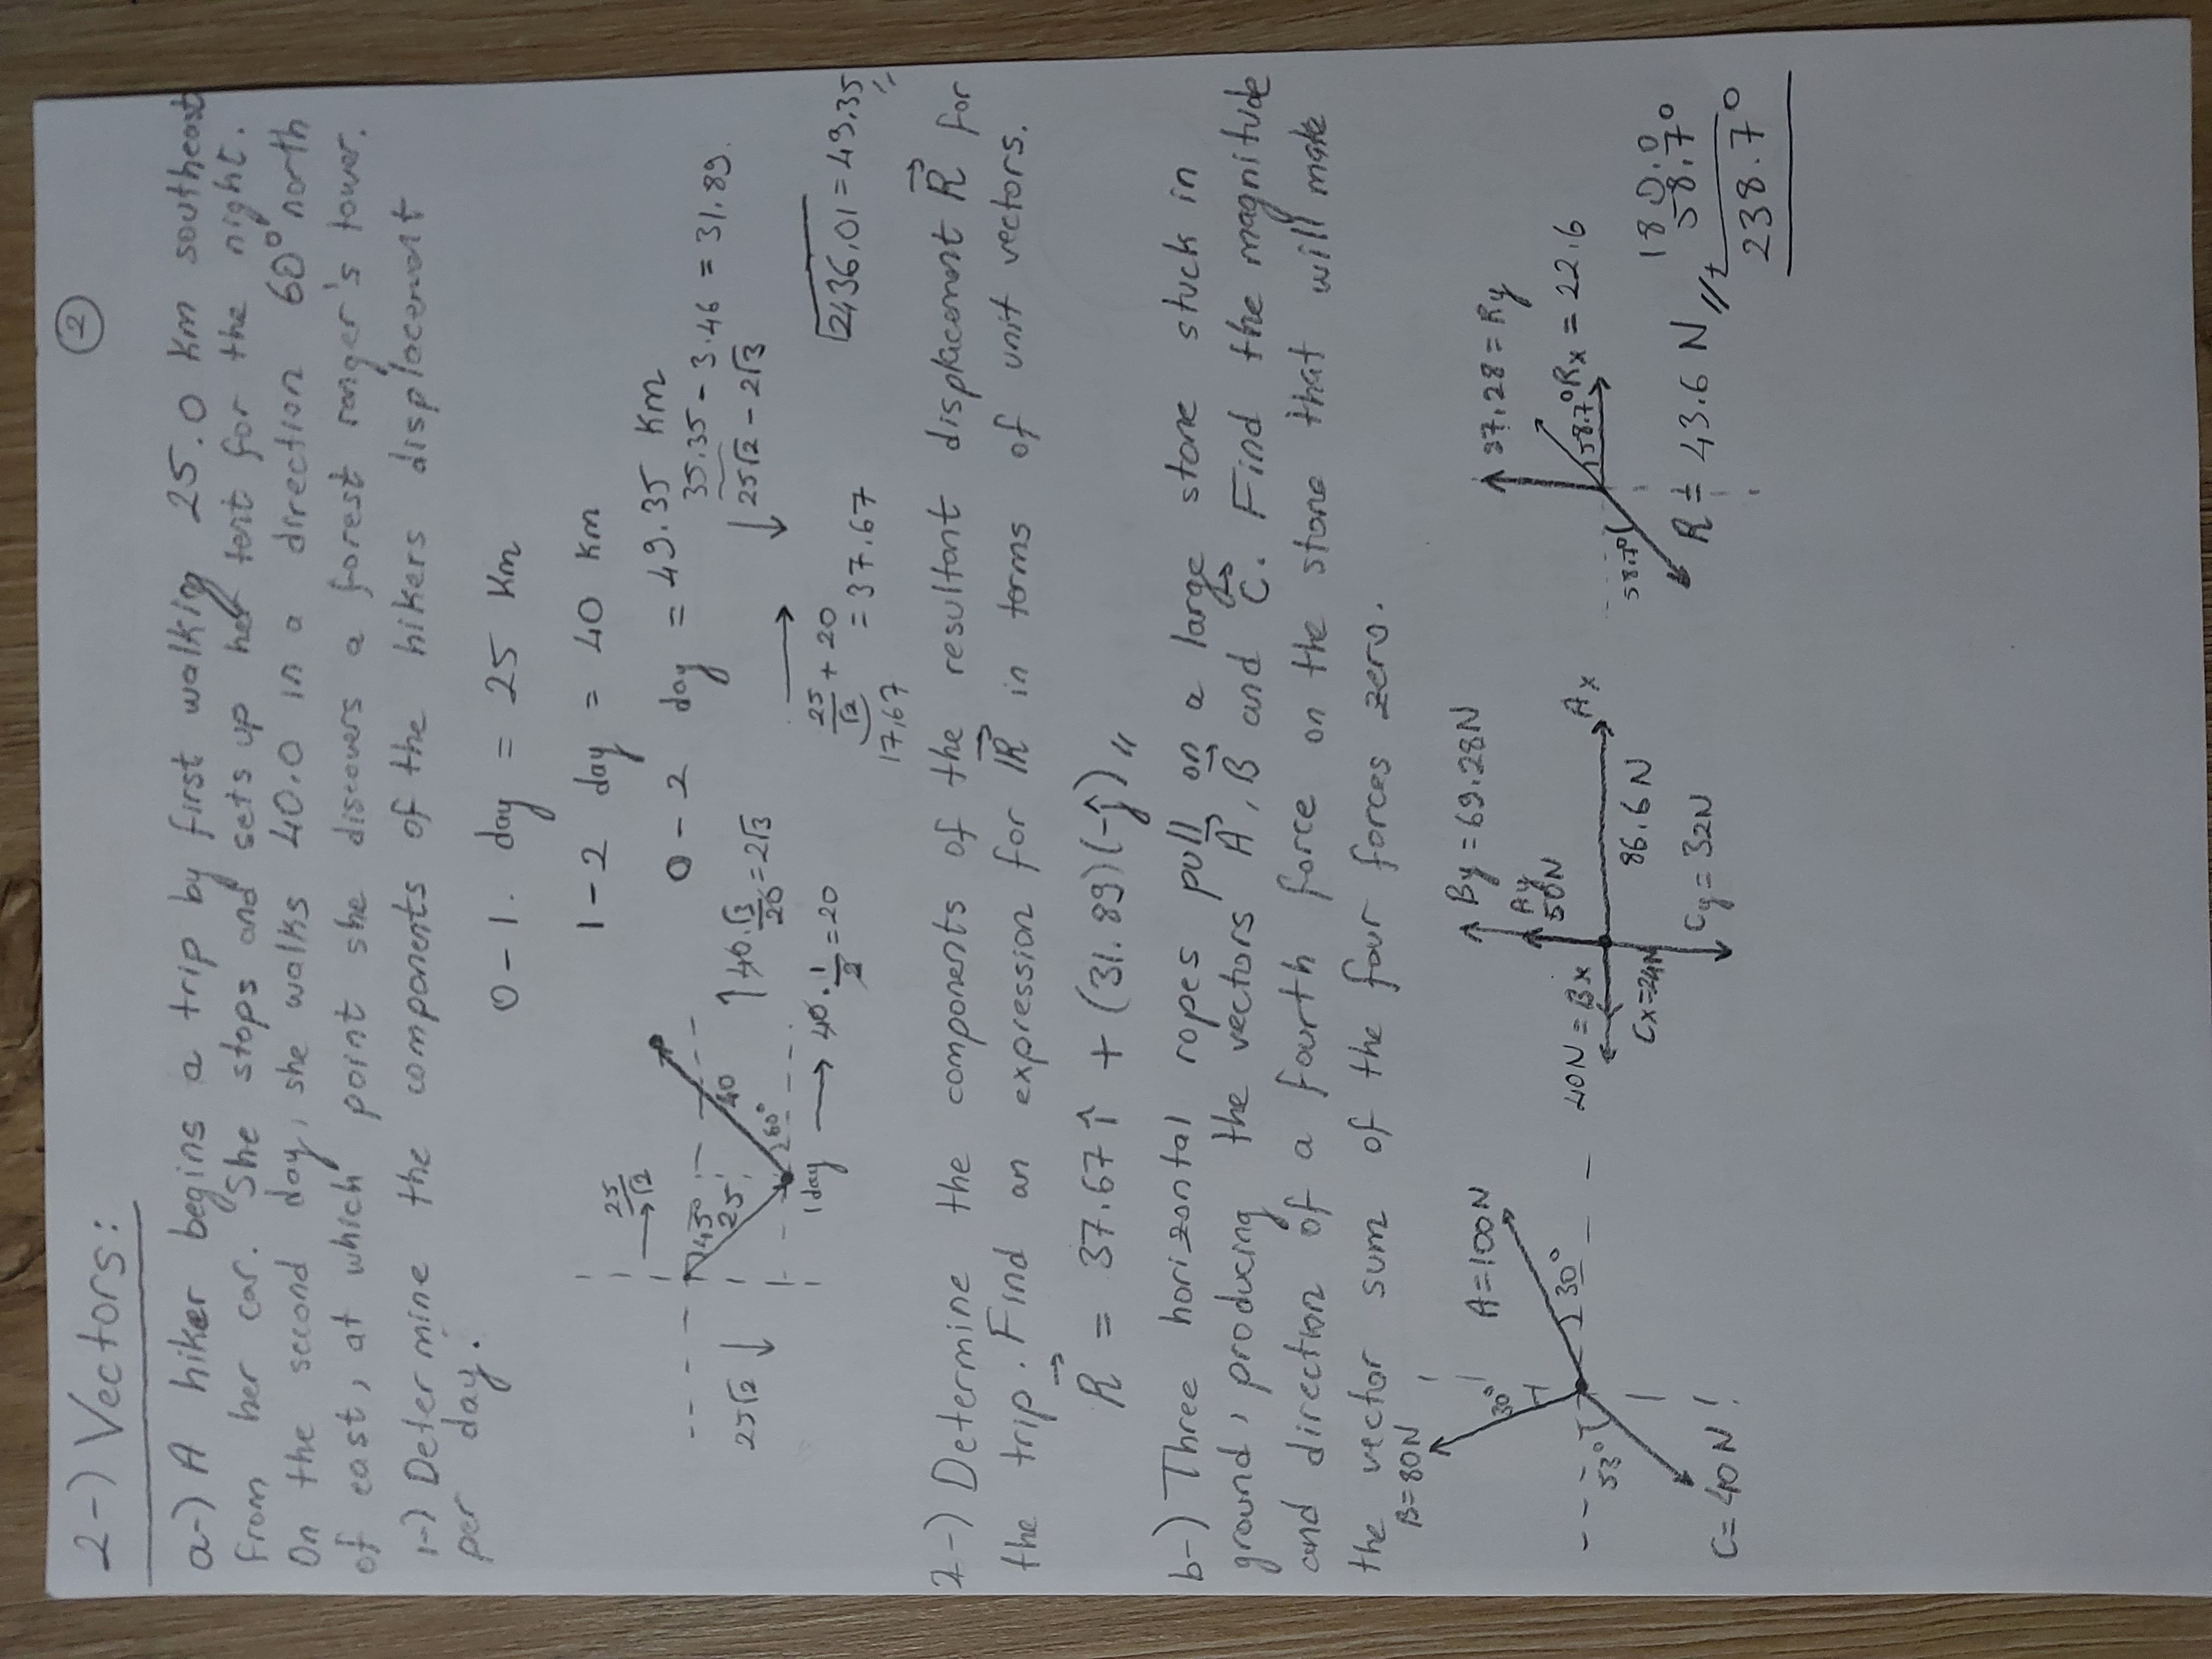 2
2-) Vectors:
a-) A hiker begins a trip by first walking 25.0 Km southeast
from her car. She stops and sets up her tent for the night.
On the second day, she walks 40.0 in a direction 60° north
of east, at which point she discovers a forest ranger's tower.
1-) Determine the components of the hikers displacement
per day.
0-1. day = 25 Km
1-2 day = 40 Km
0-2 day = 49.35 Km
25/√2
45°
25
40
60°
25√2 ↓
1 day → 40.1/2=20
↑ 40.√3/20=2√3
35.35 - 3.46 = 31.89.
↓ 25√2 - 2√3
→
25/√2 + 20
= 37.67
17,67
√2436,01 = 49,35 //
2-) Determine the components of the resultant displacement R⃗ for
the trip. Find an expression for R⃗ in terms of unit vectors.
R⃗ = 37.67 î + (31.89)(-ĵ) //
b-) Three horizontal ropes pull on a large stone stuck in
ground, producing the vectors A⃗, B⃗ and C⃗. Find the magnitude
and direction of a fourth force on the stone that will make
the vector sum of the four forces zero.
B=80N
30°
A=100N
30°
53°
C=40N!
By = 69.28N
Ay
50N
40N = Bx
Ax
Cx=24N
86.6 N
Cy = 32N
87.28 = Ry
58.7° Rx = 22.6
58.7°
R = 43.6 N //
180.0
58.7°
+
238.7°